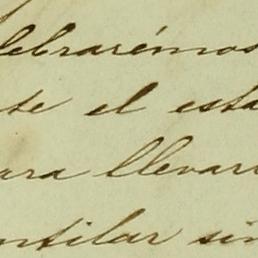 lebrarémos
te el esta
ara llevar
ntilar sin